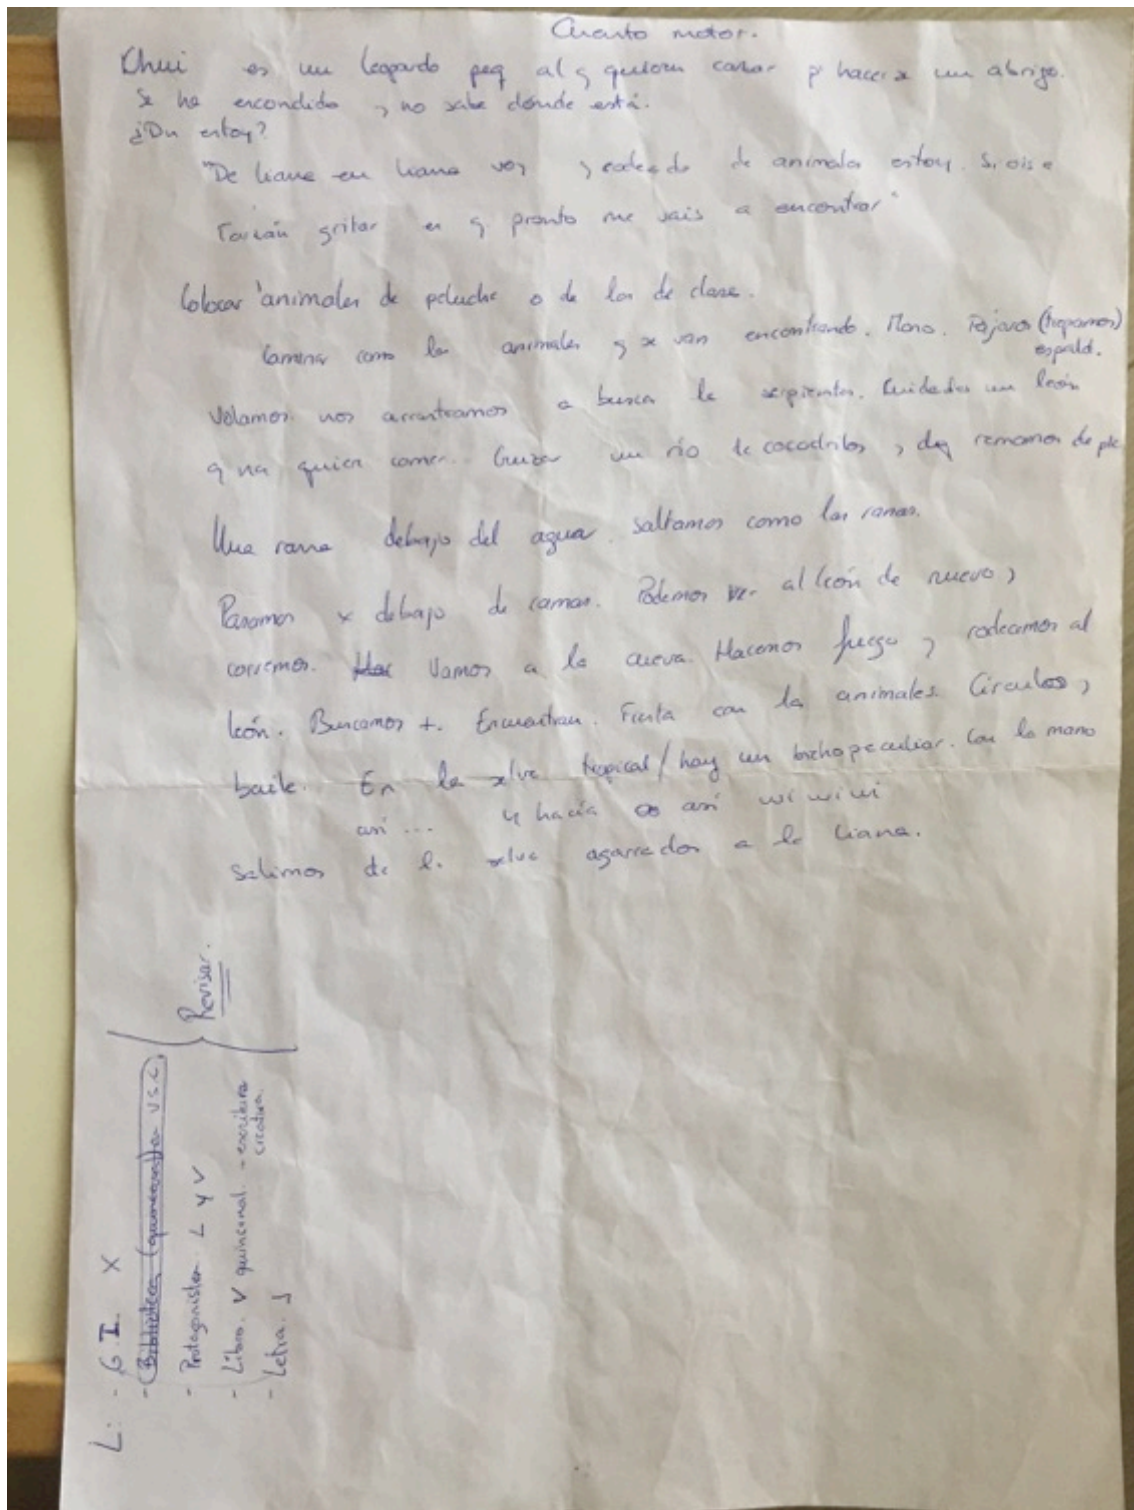 Cuento motor.
Chui es un leopardo peq al q quieren cazar p' hacerse un abrigo.
Se ha escondido y no sabe dónde está.
¿Dn estoy?
"De liana en liana voy y rodeado de animales estoy. Si oís a
Tarzán gritar es q pronto me vais a encontrar"
Colocar animales de peluche o de los de clase.
Caminar como los animales q se van encontrando. Mono. Pájaros (trepamos)
espald.
Volamos nos arrastramos a buscar la serpientes. Cuidado un león
q na quier comer. Cruzar un río de cocodrilos y remamos de pie
Una rana debajo del agua. Saltamos como las ranas.
Pasamos x debajo de ramas. Podemos ver al león de nuevo y
corremos. Vamos a la cueva. Hacemos fuego y rodeamos al
león. Buscamos +. Encuentran. Fiesta con los animales. Círculos y
baile. En la selva tropical / hay un bicho peculiar. Con la mano
así... y hacía así wi wi wi
Salimos de la selva agarrados a la liana.
L: - G.I. X
- Biblioteca V S.L.
- Protagonista L y V
- Libro. V quincenal. - escritura
creativa.
- Letra. J
Revisar.